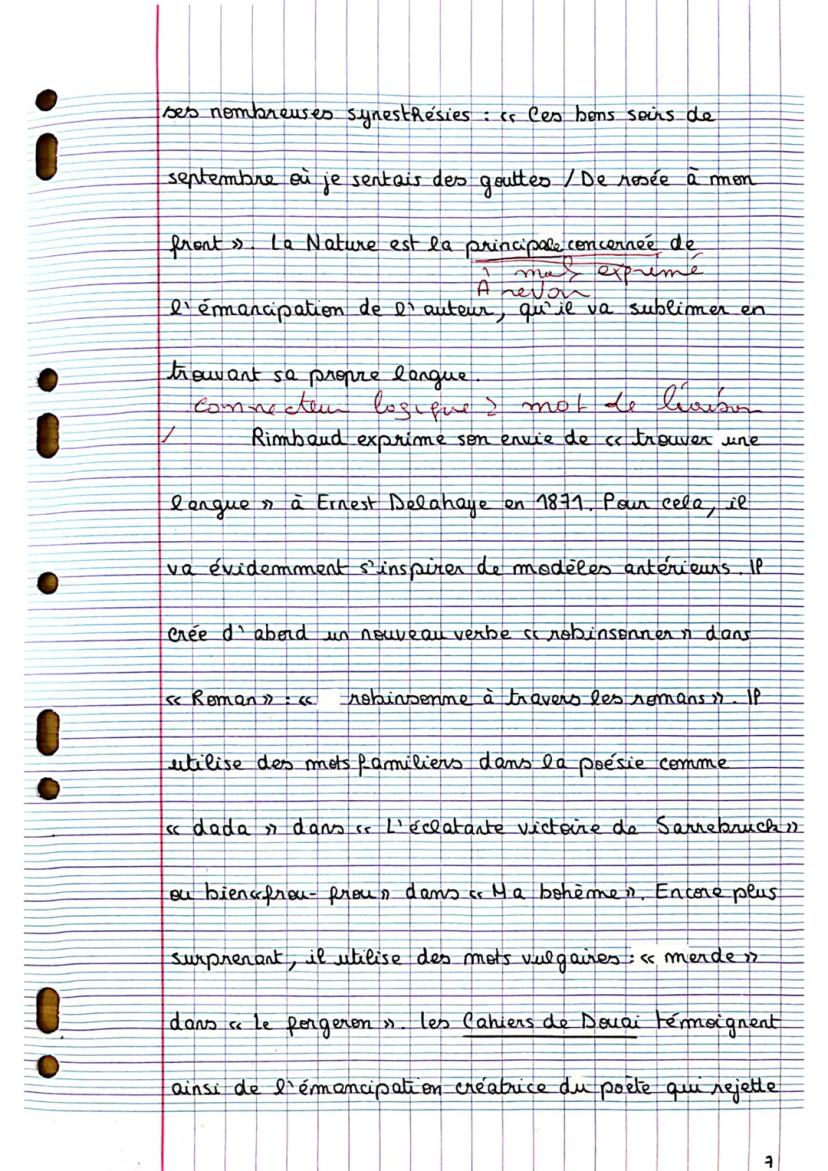 ses nombreuses synesthésies : « Ces bons soirs de
septembre où je sentais des gouttes / De rosée à mon
front ». La Nature est la principale concernée de
mal exprimé
A revoir
l'émancipation de l'auteur, qu'il va sublimer en
trouvant sa propre langue.
connecteur logique ? mot de liaison
/ Rimbaud exprime son envie de « trouver une
langue » à Ernest Delahaye en 1871. Pour cela, il
va évidemment s'inspirer de modèles antérieurs. Il
crée d'abord un nouveau verbe « robinsonner » dans
« Roman » : « robinsonne à travers les romans ». Il
utilise des mots familiers dans la poésie comme
« dada » dans « L'éclatante victoire de Sarrebruck »
ou bien « frou-frou » dans « Ma bohème ». Encore plus
surprenant, il utilise des mots vulgaires : « merde »
dans « le forgeron ». les Cahiers de Douai témoignent
ainsi de l'émancipation créatrice du poète qui rejette
7